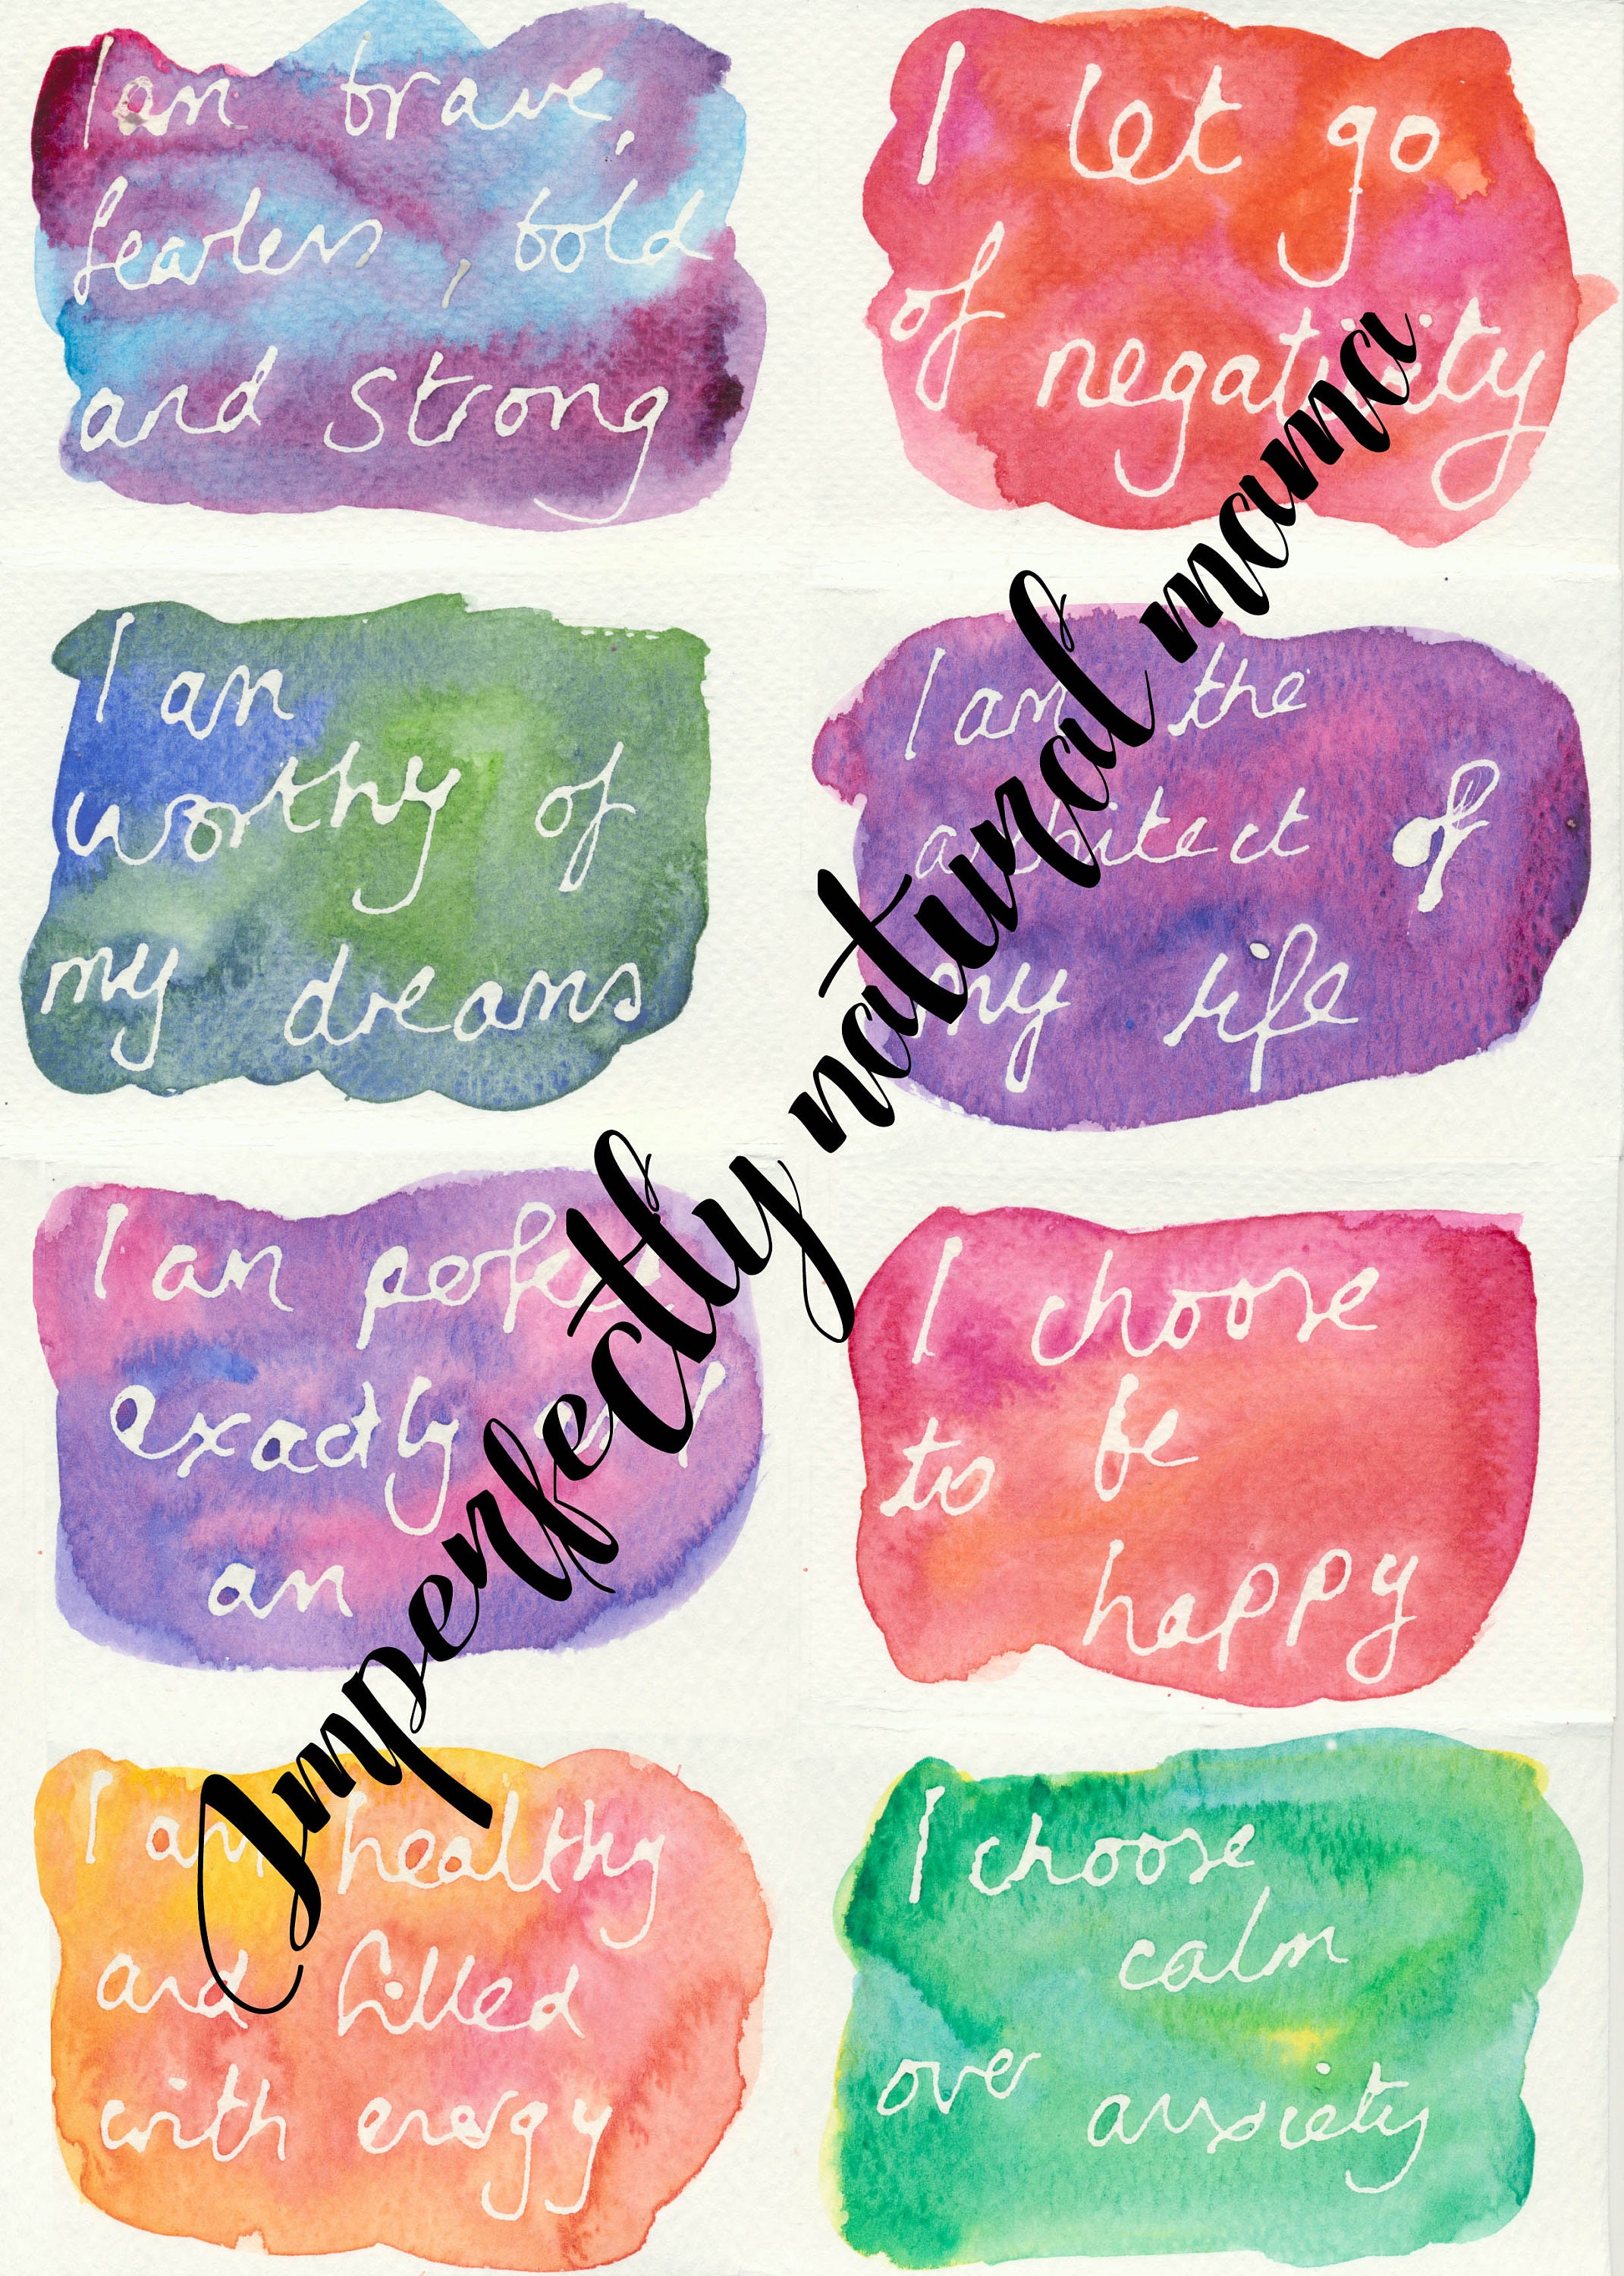 I am brave,
fearless, bold
and strong
I let go
of negativity
I am
worthy of
my dreams
I am the
architect of
my life
I am perfect
exactly as I
am
I choose
to be
happy
I am healthy
and filled
with energy
I choose
calm
over anxiety
Imperfectly natural mama